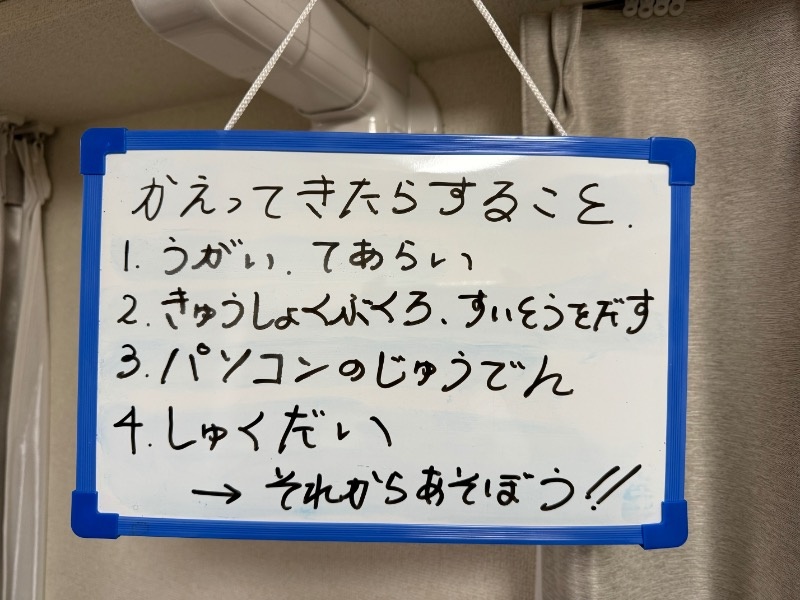 かえってきたらすること.
1. うがい. てあらい
2. きゅうしょくぶくろ、すいとうをだす
3. パソコンのじゅうでん
4. しゅくだい
→ それからあそぼう!!